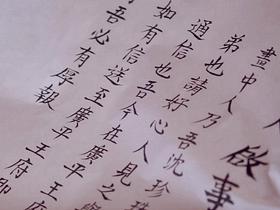 人啟事
畫中人乃吾沈珍珠
弟也請好心人見之與
通信也吾今在廣平王
如有信送至廣平王府即
吾必有厚報